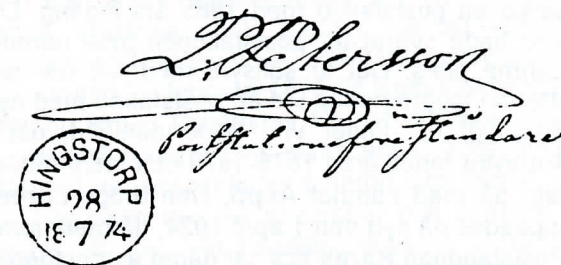 L. Petersson
Poststationsföreståndare
HINGSTORP
28
18 7 74